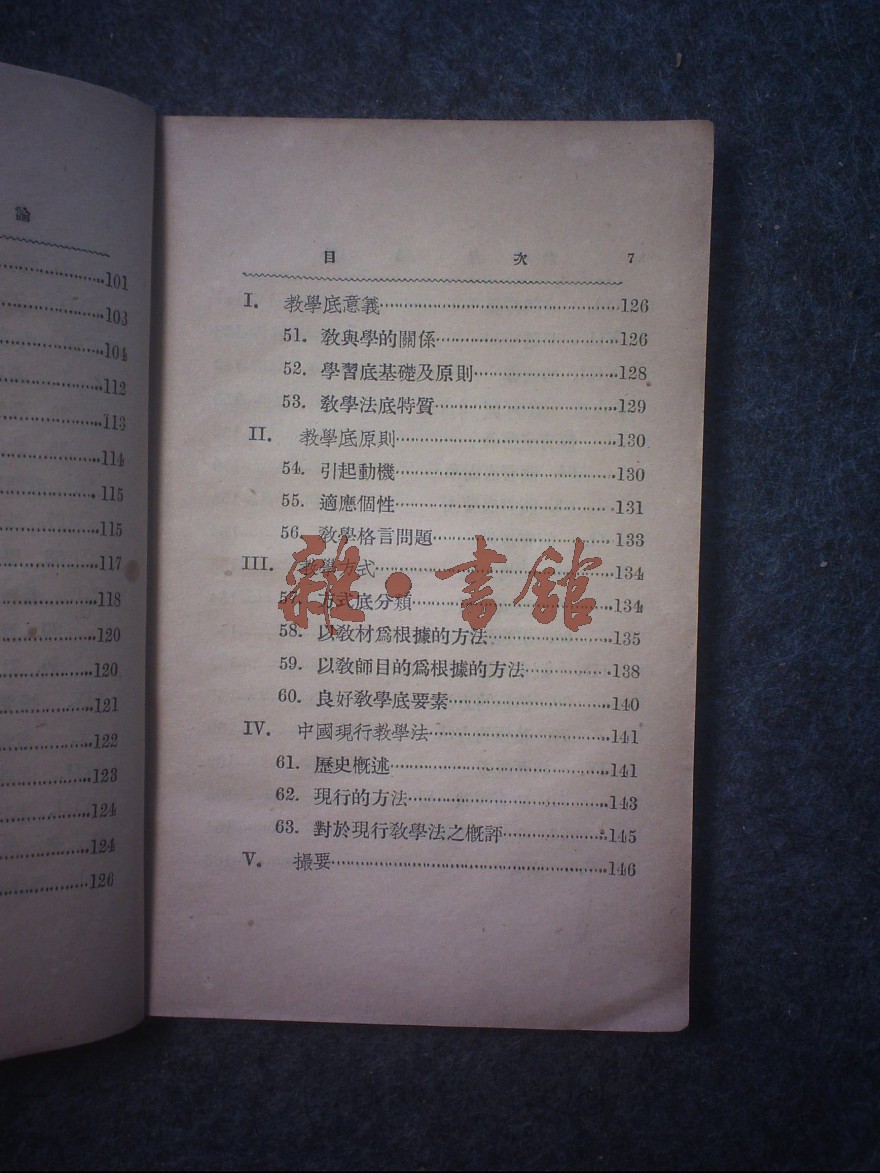 論
101
103
104
112
113
114
115
115
117
118
120
120
121
122
123
124
124
126
目 次 7
I. 教學底意義……126
51. 教與學的關係……126
52. 學習底基礎及原則……128
53. 教學法底特質……129
II. 教學底原則……130
54. 引起動機……130
55. 適應個性……131
56. 教學格言問題……133
III. 教學方式……134
57. 方式底分類……134
58. 以教材爲根據的方法……135
59. 以教師目的爲根據的方法……138
60. 良好教學底要素……140
IV. 中國現行教學法……141
61. 歷史槪述……141
62. 現行的方法……143
63. 對於現行教學法之槪評……145
V. 撮要……146
雜·書館